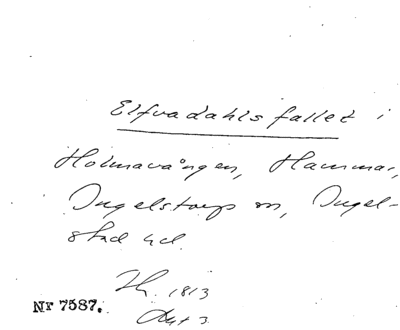 Elfvadahlsfallet i
Holmavången, Hammar,
Ingelstorps sn, Ingel-
stad hd.
1813
Akt 3
Nr 7587.